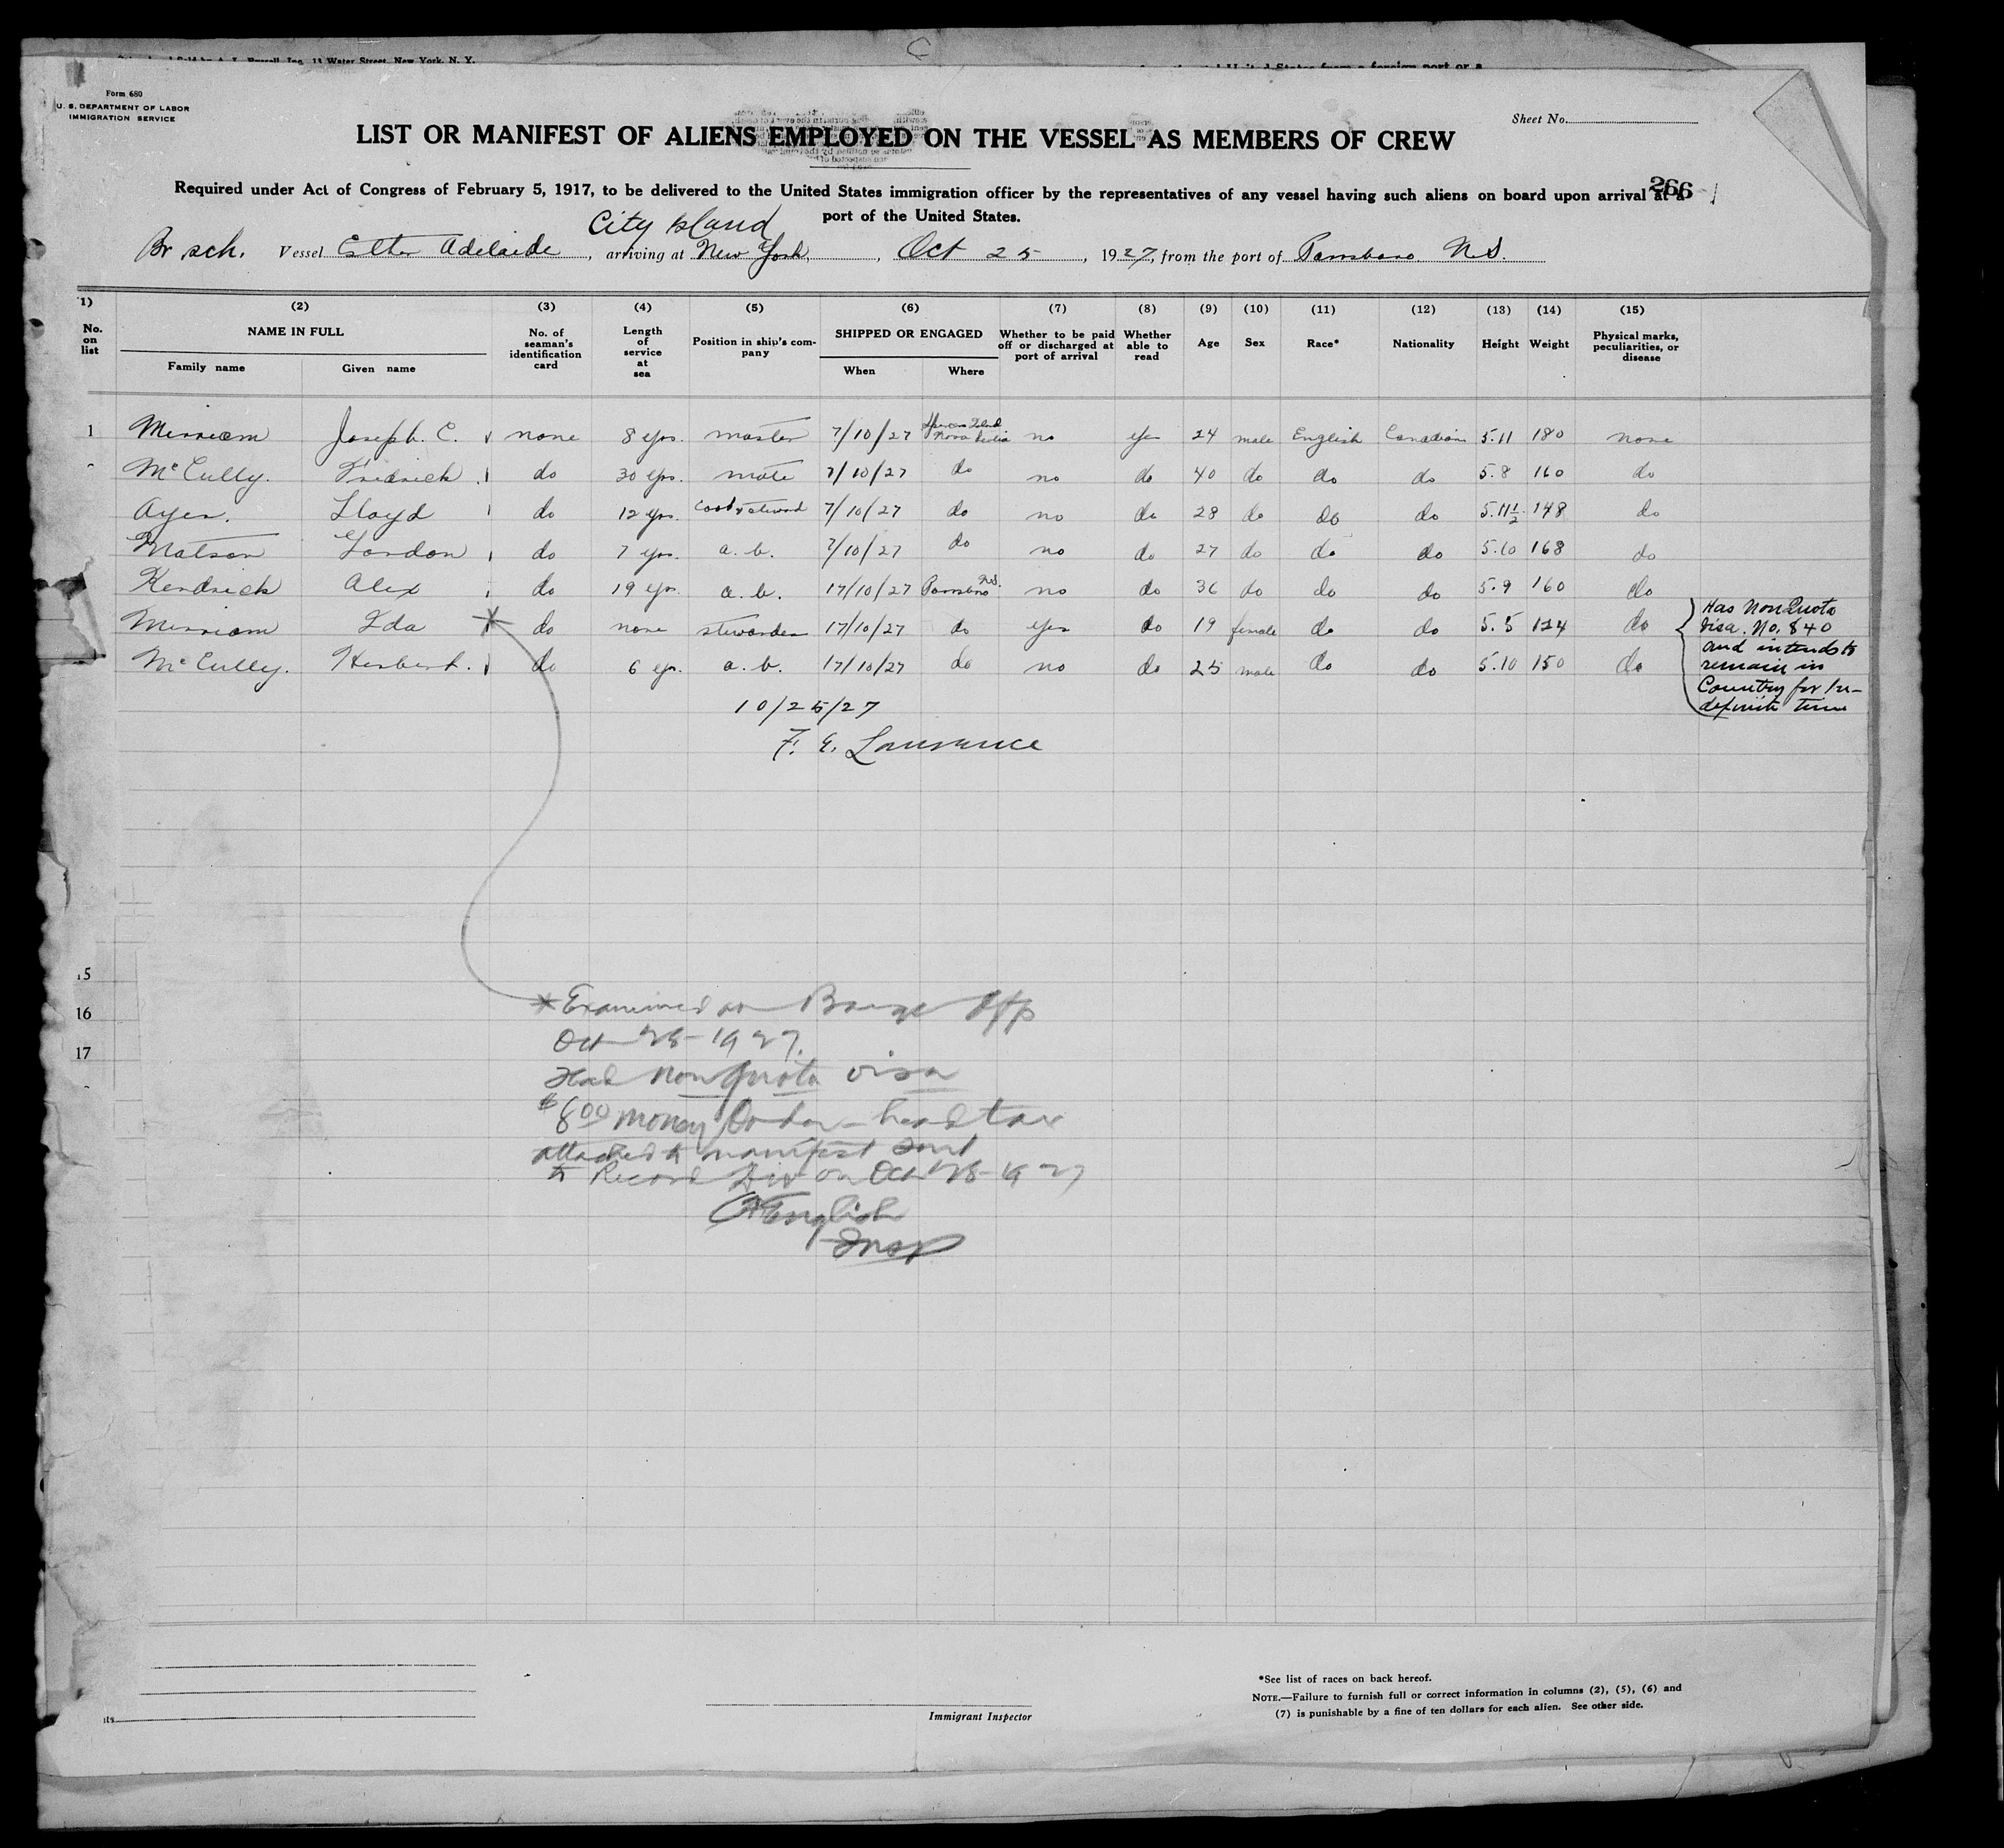 C
Form 680
U. S. DEPARTMENT OF LABOR
IMMIGRATION SERVICE
Sheet No.
LIST OR MANIFEST OF ALIENS EMPLOYED ON THE VESSEL AS MEMBERS OF CREW
Required under Act of Congress of February 5, 1917, to be delivered to the United States immigration officer by the representatives of any vessel having such aliens on board upon arrival at a
266
port of the United States.
City Island
Br sch. Vessel Esther Adelaide, arriving at New York, Oct 25, 1927, from the port of Parrsboro N.S.
(1) (2) (3) (4) (5) (6) (7) (8) (9) (10) (11) (12) (13) (14) (15)
No. on list NAME IN FULL Family name Given name No. of seaman's identification card Length of service at sea Position in ship's company SHIPPED OR ENGAGED When Where Whether to be paid off or discharged at port of arrival Whether able to read Age Sex Race* Nationality Height Weight Physical marks, peculiarities, or disease
1 Merriam Joseph. C. none 8 yrs. master 7/10/27 Nova Scotia no yes 24 male English Canadian 5.11 180 none
McCully. Fredrick do 30 yrs. mate 7/10/27 do no do 40 do do do 5.8 160 do
Ayer. Lloyd do 12 yrs. cook & steward 7/10/27 do no do 28 do do do 5.11½ 148 do
Matson Gordon do 7 yrs. a. b. 7/10/27 do no do 27 do do do 5.10 168 do
Kendrick Alex do 19 yrs. a. b. 17/10/27 Parrsboro N.S. no do 36 do do do 5.9 160 do
Merriam Ida * do none stewardess 17/10/27 do yes do 19 female do do 5.5 124 do
McCully. Herbert. do 6 yrs. a. b. 17/10/27 do no do 25 male do do 5.10 150 do
Has Non Quota
Visa. No. 840
and intends to
remain in
Country for In-
definite time
10/25/27
F. E. Lawrance
15
16
17
* Examined on Barge Off
Oct 28-1927.
Had Non Quota visa
$8.00 money Order - head tax
attached to manifest sent
to Record Div on Oct 28-1927
English
Insp
Immigrant Inspector
*See list of races on back hereof.
NOTE.—Failure to furnish full or correct information in columns (2), (5), (6) and
(7) is punishable by a fine of ten dollars for each alien. See other side.